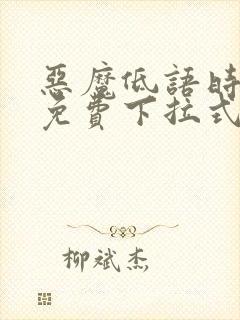 惡魔低語時
免費下拉式
柳斌杰